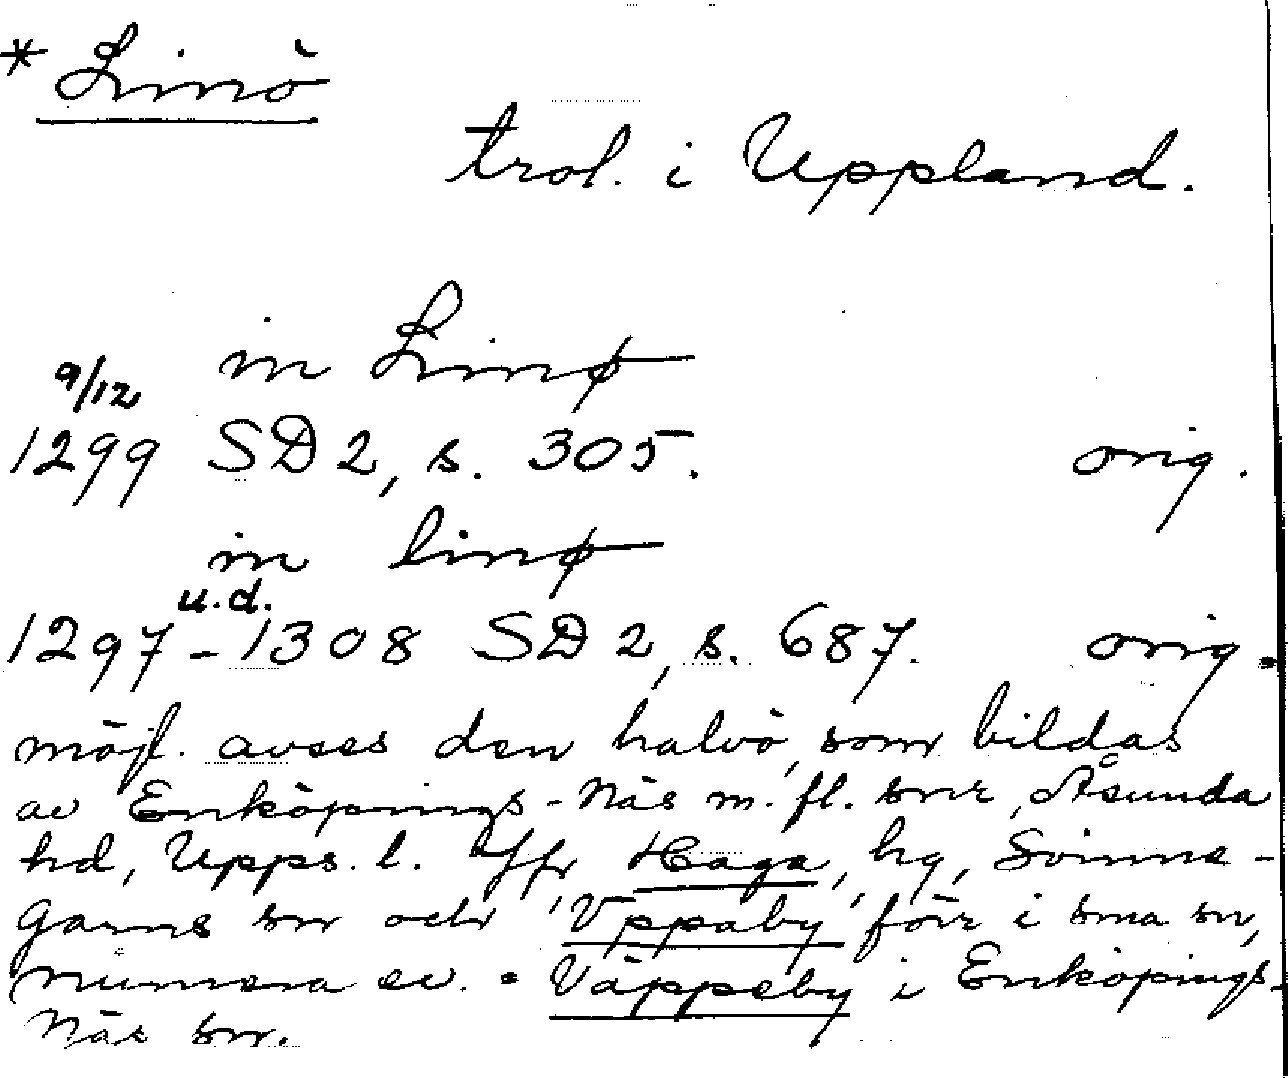 * Linö
trol. i Uppland.
in Linø
9/12
1299 SD 2, s. 305. orig.
in linø
u.d.
1297-1308 SD 2, s. 687. orig.
möjl. avses den halvö, som bildas
av Enköpings-Näs m. fl. snr, Åsunda
hd, Upps. l. Jfr Haga, hg, Svinne-
garns sn och 'Vppaby' förr i sma sn,
numera ev. = Väppeby i Enköpings-
Näs sn.